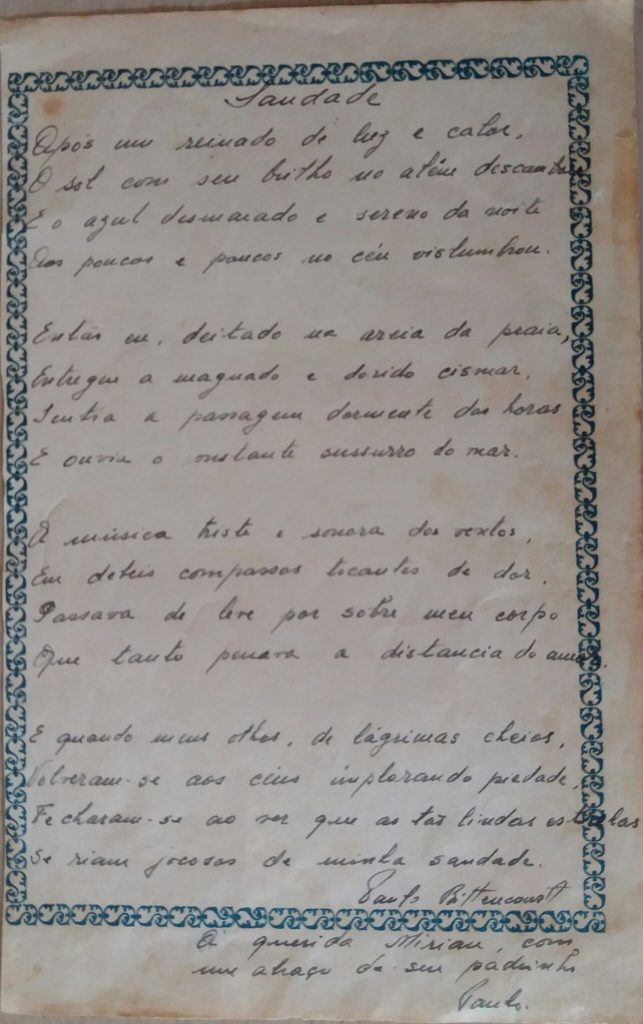 Saudade
Após um reinado de luz e calor,
O sol com seu brilho no além descambou
E o azul desmaiado e sereno da noite
Aos poucos e poucos no céu vislumbrou.
Então eu, deitado na areia da praia,
Entregue a magoado e dorido cismar,
Sentia a passagem dormente das horas
E ouvia o constante sussurro do mar.
A música triste e sonora dos ventos,
Em débeis compassos tocantes de dor,
Passava de leve por sôbre meu corpo
Que tanto penava a distancia do amor.
E quando meus olhos, de lágrimas cheios,
Volveram-se aos céus implorando piedade,
Fecharam-se ao ver que as tão lindas estrelas
Se riam jocosas de minha saudade.
Paulo Bittencourt
À querida Miriam, com
um abraço de seu padrinho
Paulo.